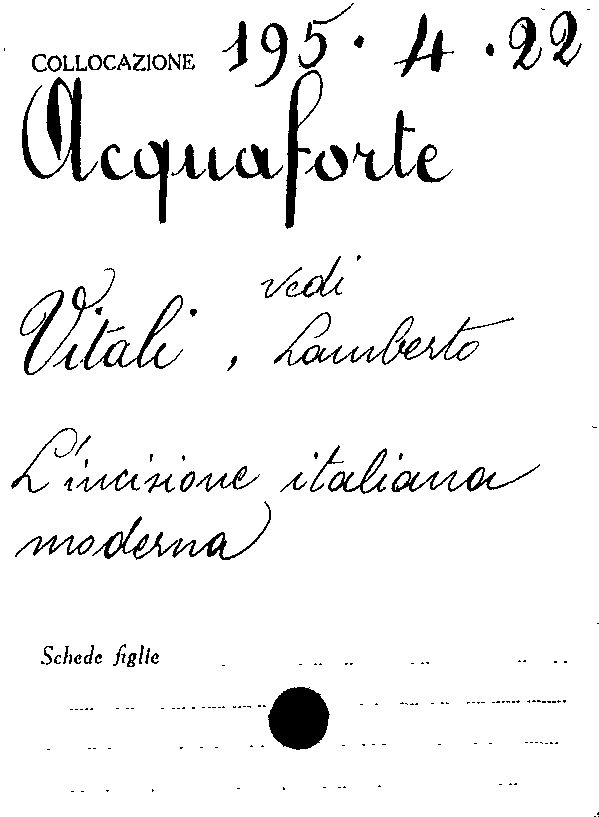 COLLOCAZIONE 195.4.22
Acquaforte
vedi
Vitali, Lamberto
L'incisione italiana
moderna
Schede figlie